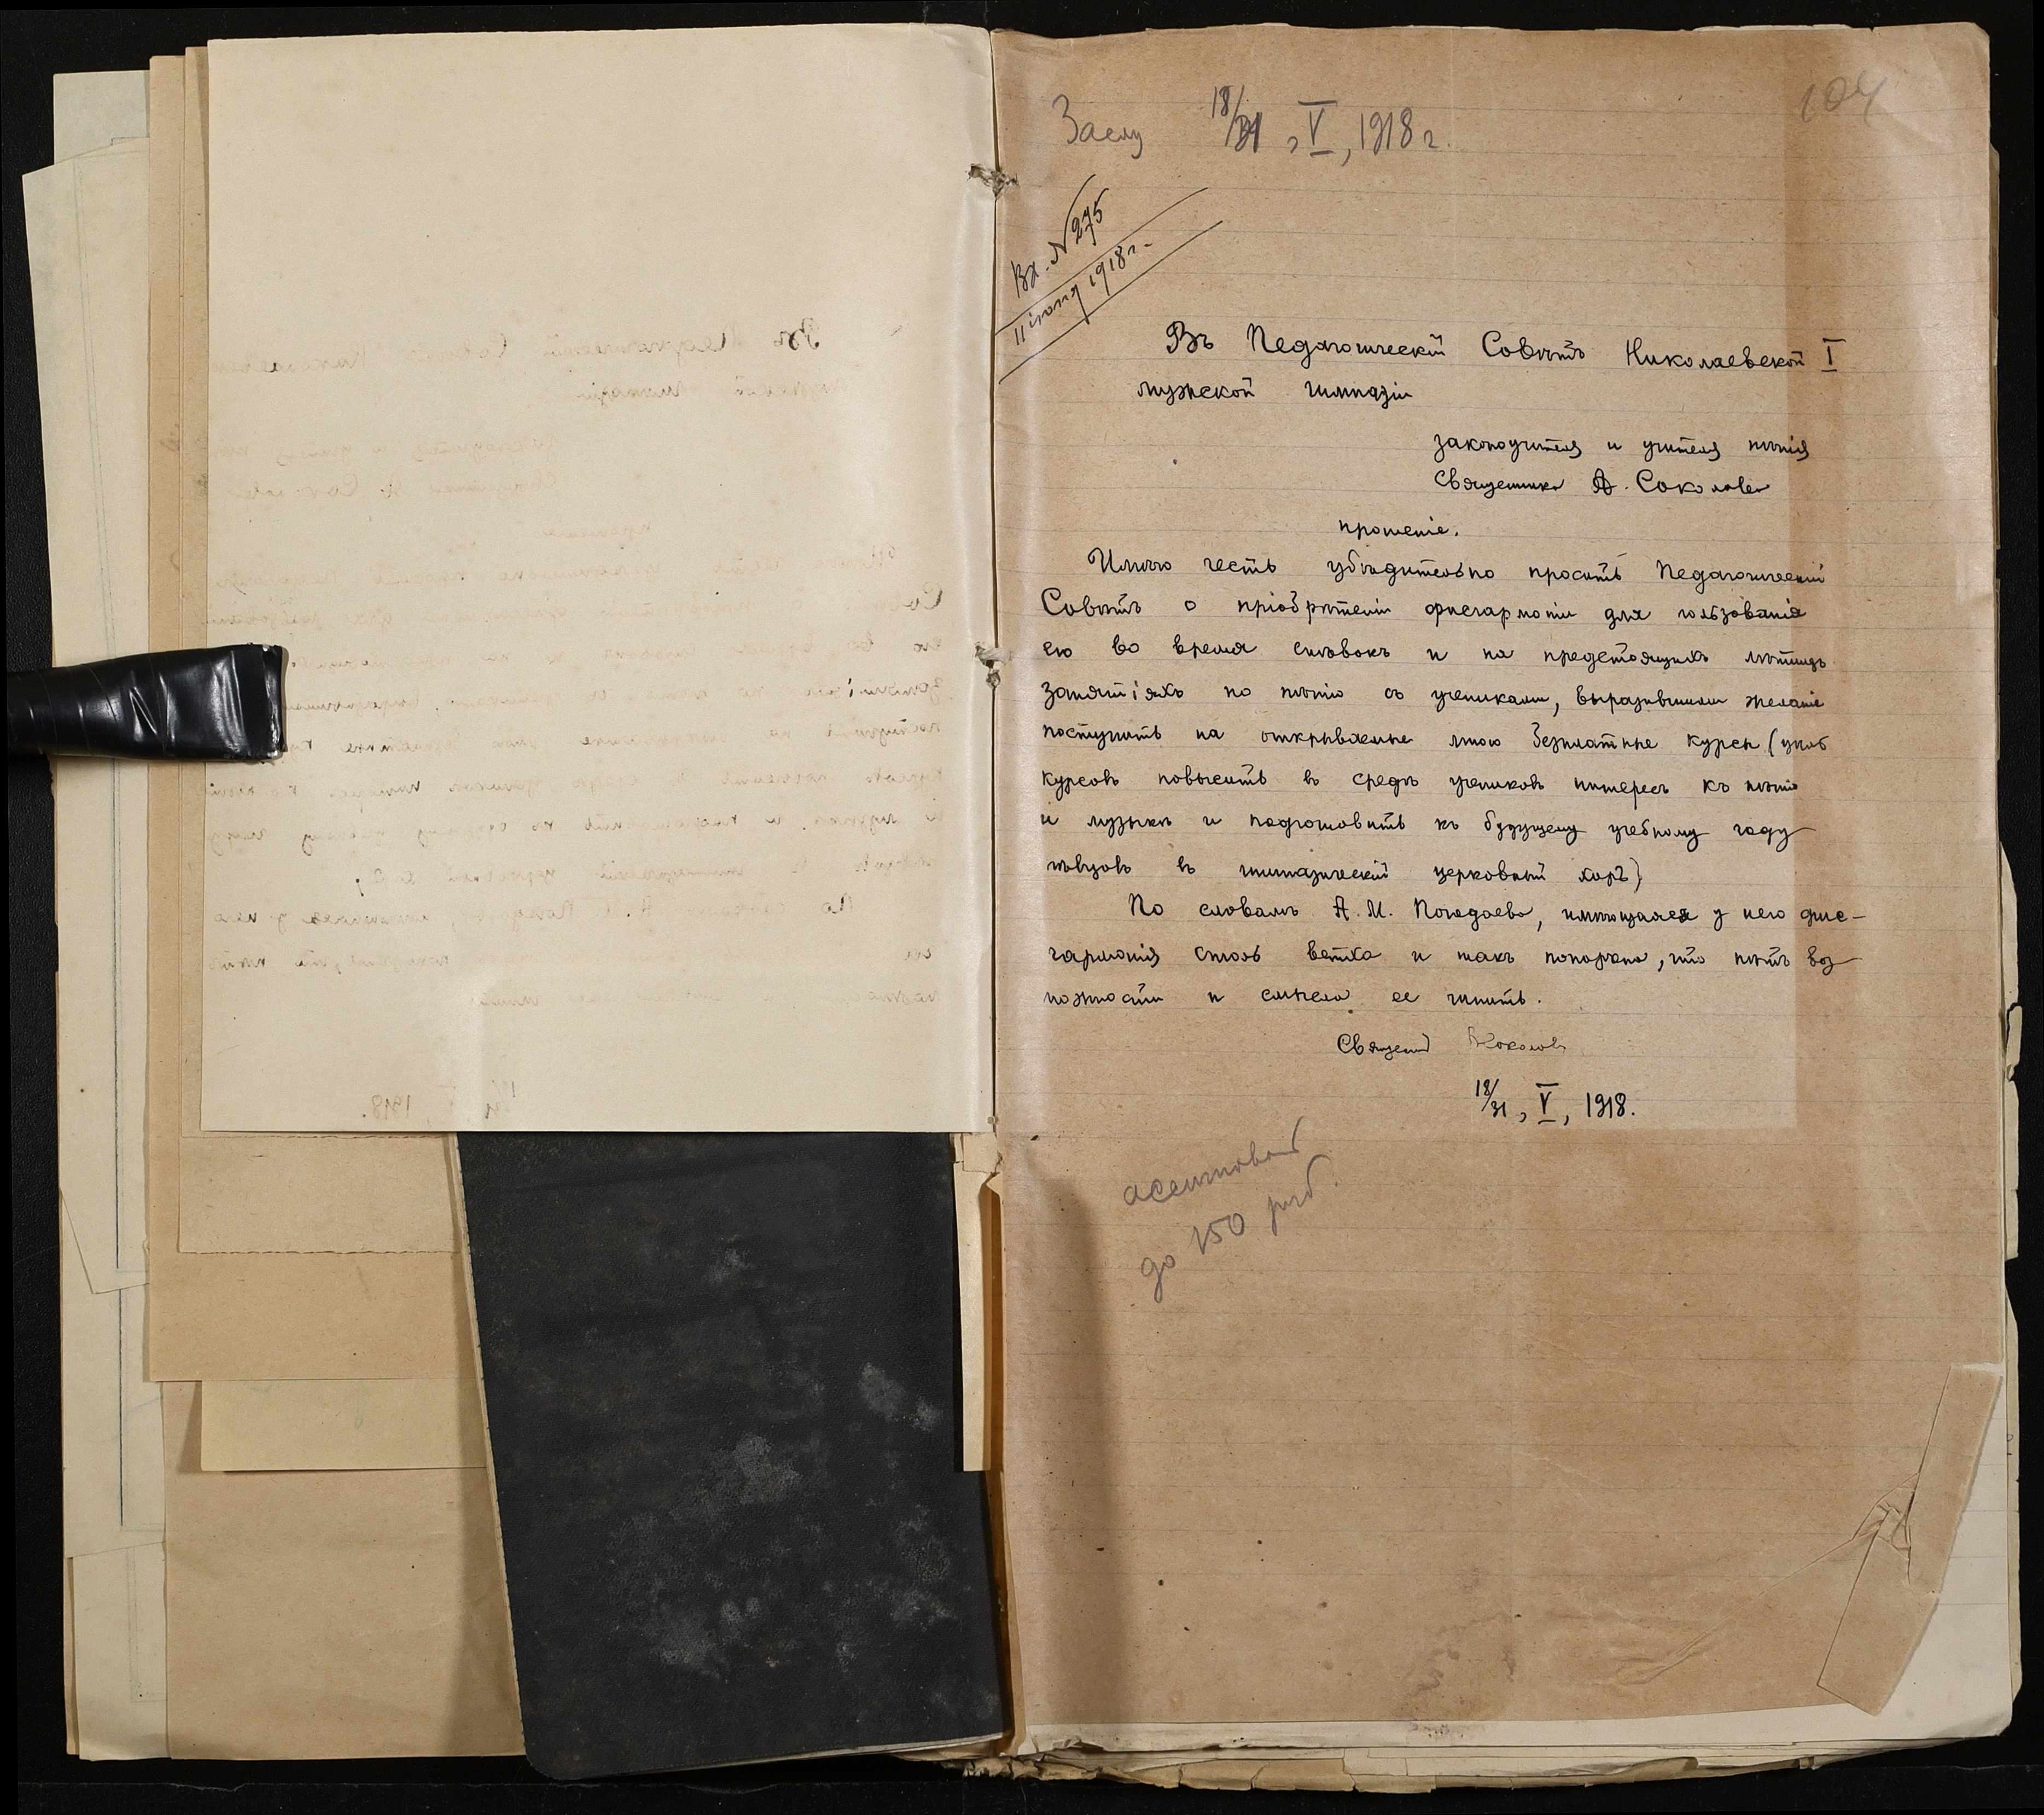 104
18/31, V, 1918 г.
Вх. N 275
11 іюня 1918 г.
Въ Педагогическій Совѣтъ Николаевской I
мужской гимназіи
законоучителя и учителя пѣнія
Священника А. Соколова
прошеніе.
Имѣю честь убѣдительно просить Педагогическій
Совѣтъ о пріобрѣтеніи фисгармоніи для пользованія
ею во время спѣвокъ и на предстоящихъ лѣтнихъ
занятіяхъ по пѣнію съ учениками, выразившими желаніе
поступить на открываемые мною безплатные курсы (цѣль
курсовъ повысить въ средѣ учениковъ интересъ къ пѣнію
и музыкѣ и подготовить къ будущему учебному году
пѣвцовъ въ гимназическій церковный хоръ)
По словамъ А. И. Погодаева, имѣющаяся у него фис-
гармонія столь ветха и такъ попорчена, что нѣтъ воз-
можности и смысла ее чинить.
Священ Соколовъ
18/31, V, 1918.
до 150 руб.